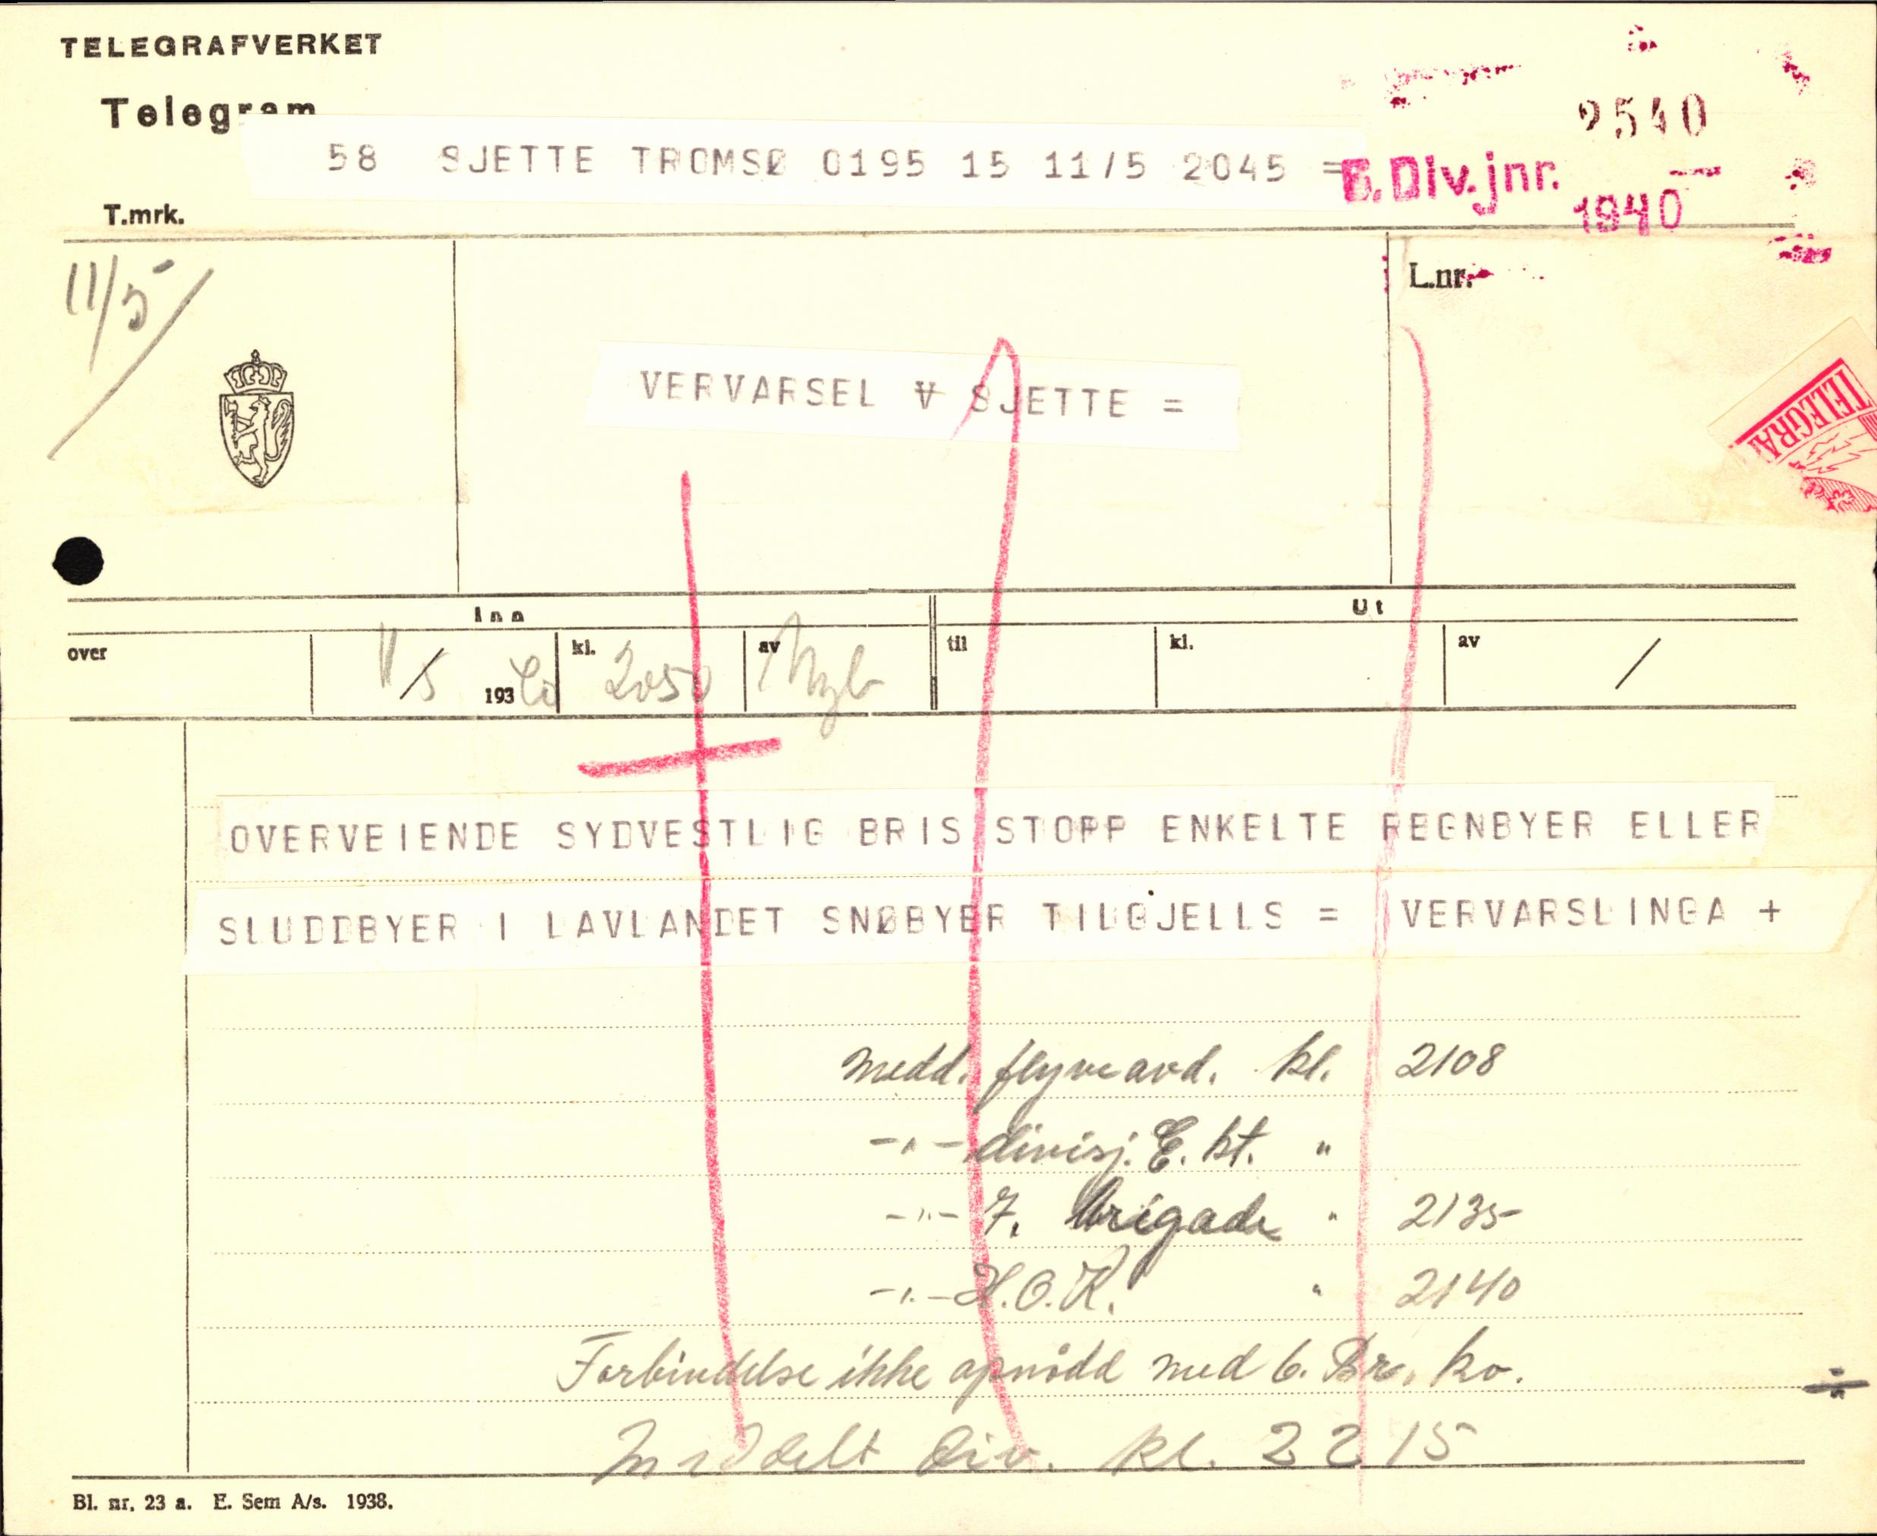 TELEGRAFVERKET
Telegram
58 SJETTE TROMSØ 0195 15 11/5 2045 =
2540
6. Div. jnr.
1940
T.mrk.
11/5
L.nr.
VERVARSEL V SJETTE =
TELEGRA
Inn
Ut
over
11/5 1940
kl. 2050
av
til
kl.
av /
OVERVEIENDE SYDVESTLIG BRIS STOPP ENKELTE REGNBYER ELLER
SLUDDBYER I LAVLANDET SNØBYER TILGJELLS = VERVARSLINGA +
Medd. flyveavd. kl. 2108
-"- divisj. E. kt. "
-"- 7. brigade " 2135
-"- H.O.K. " 2140
Forbindelse ikke opnådd med 6. Br. ko.
Meddelt div. kl. 2215
Bl. nr. 23 a. E. Sem A/s. 1938.